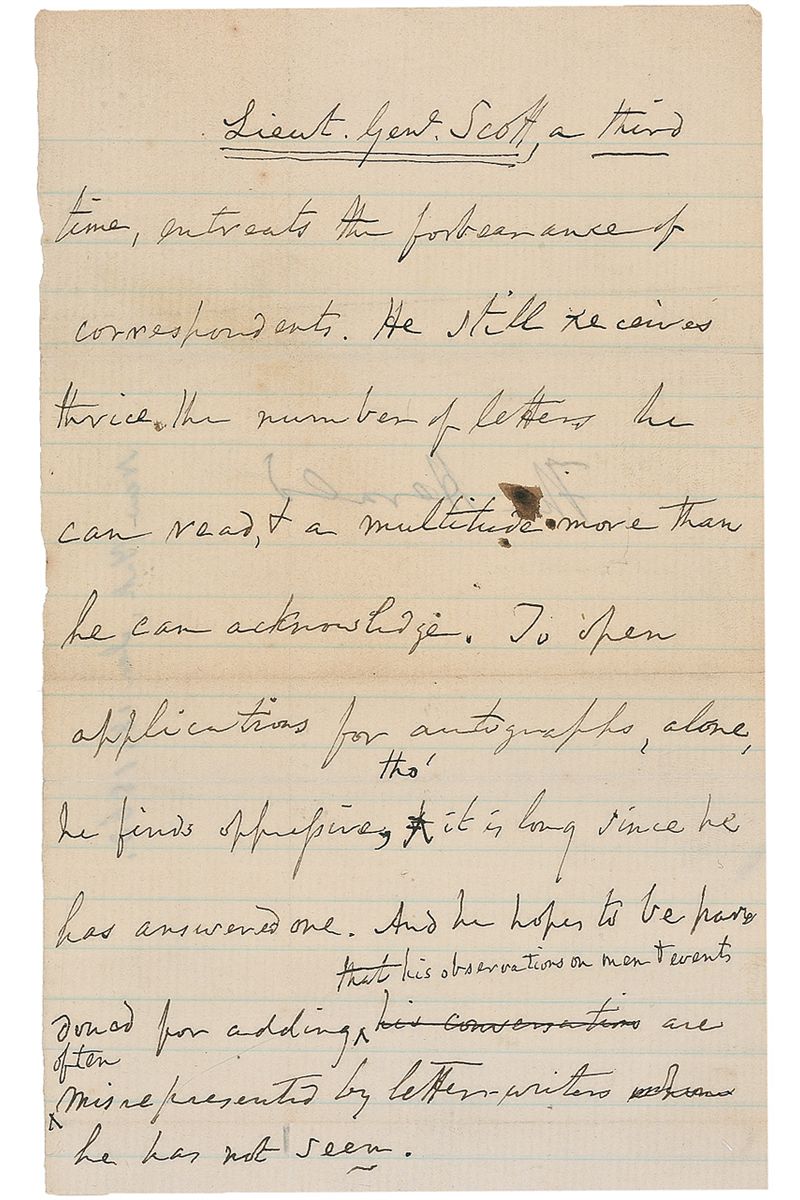 Lieut. Genl. Scott, a third
time, entreats the forbearance of
correspondents. He still receives
thrice the number of letters he
can read, & a multitude more than
he can acknowledge. To open
applications for autographs, alone,
tho'
he finds oppressive, it is long since he
has answered one. And he hopes to be par-
that his observations on men & events
doned for adding, his conversations are
often
misrepresented by letter-writers whom
he has not seen.
The Herald
New York